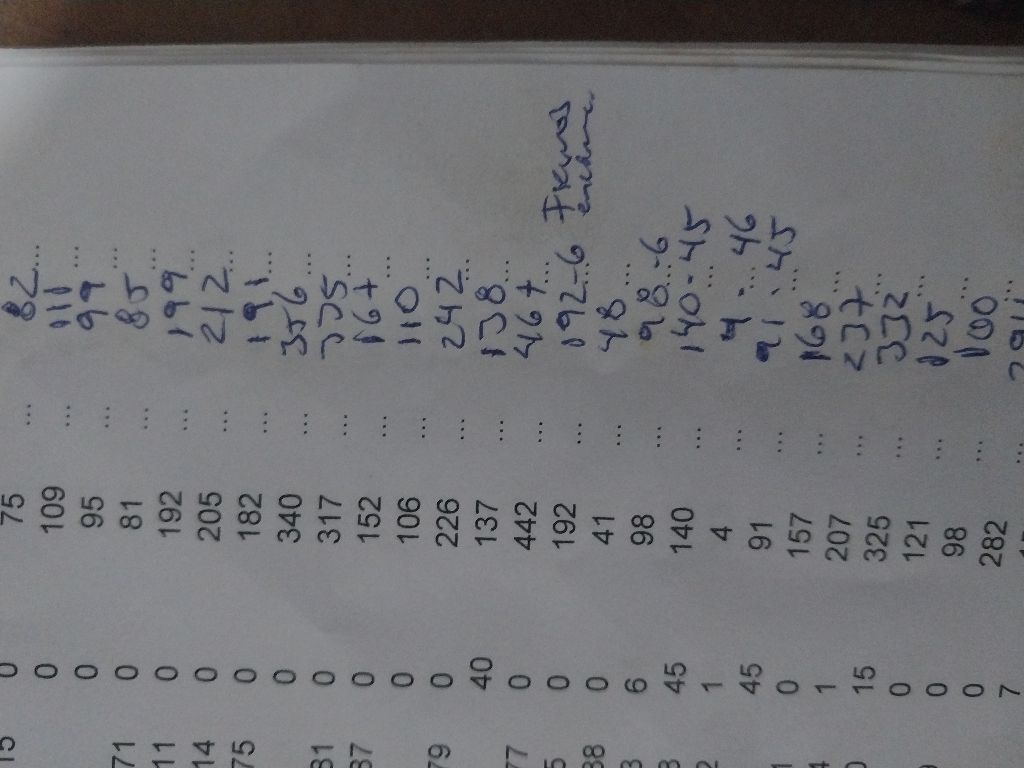 15 0 75 ... 82...
0 109 ... 111 ...
0 95 ... 99 ...
71 0 81 ... 85 ...
11 0 192 ... 199 ...
14 0 205 ... 212 ...
75 0 182 ... 191 ...
0 340 ... 356 ...
81 0 317 ... 335 ...
87 0 152 ... 167 ...
0 106 ... 110 ...
79 0 226 ... 242 ...
40 137 ... 138 ...
77 0 442 ... 467 ...
5 0 192 ... 192-6 ...
88 0 41 ... 48 ...
3 6 98 ... 98-6 ...
8 45 140 ... 140-45 ...
2 1 4 ... 4 . 46 ...
45 91 ... 91 . 45 ...
1 0 157 ... 168 ...
4 1 207 ... 237 ...
0 15 325 ... 332 ...
0 121 ... 125 ...
0 98 ... 100 ...
0 282 ... 291 ...
7